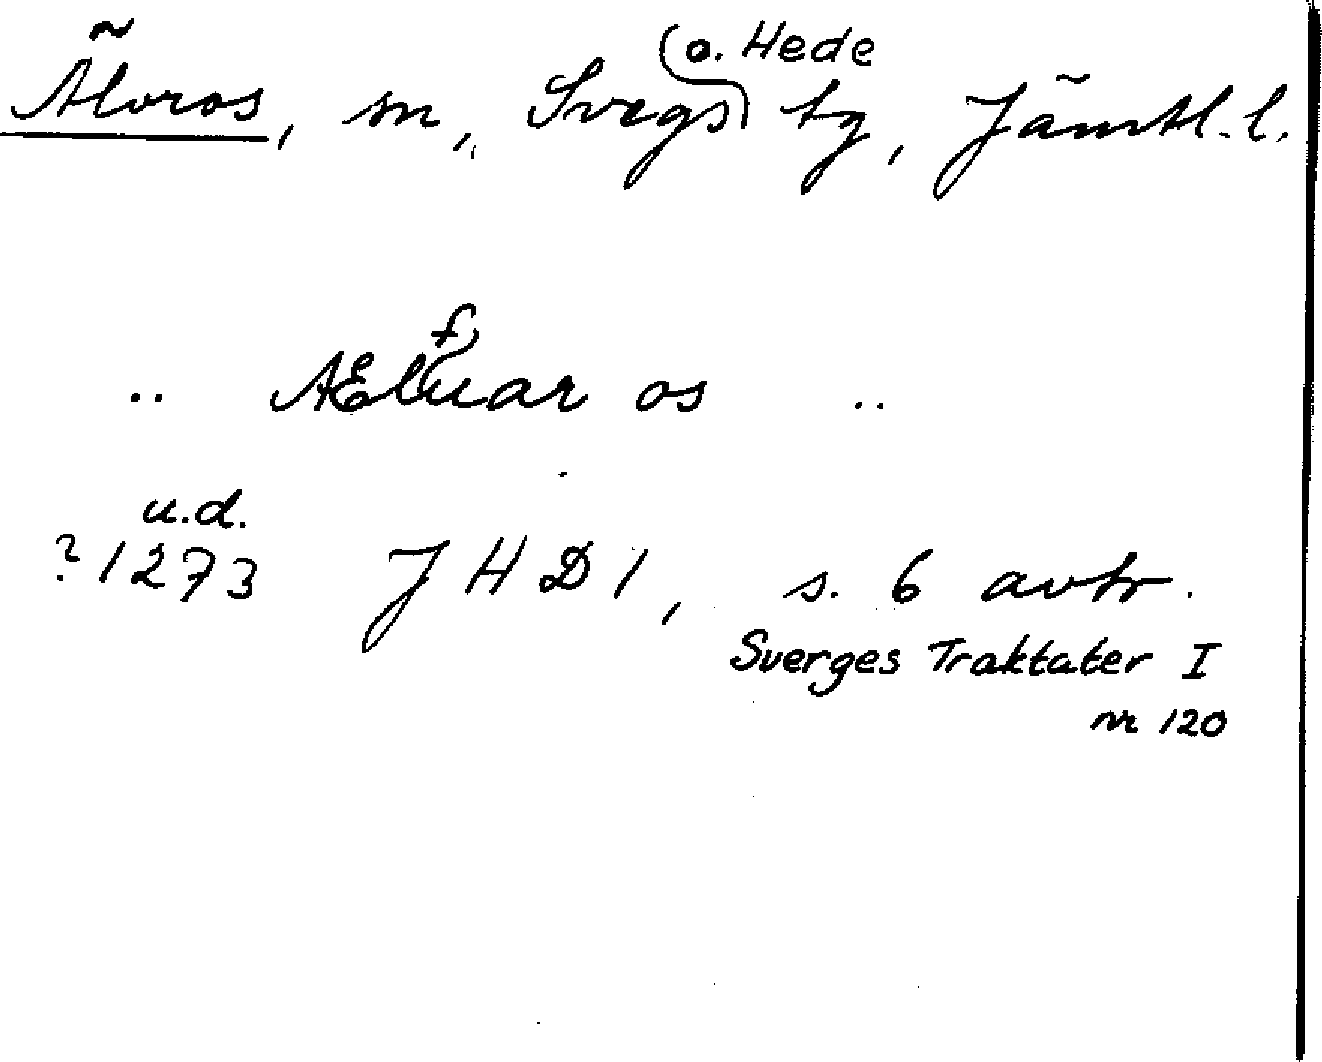 Älvros, sn, Svegs o. Hede tg, Jämtl. l.
.. AElfuar os ..
u.d.
? 1273 JHD 1, s. 6 avtr.
Sverges Traktater I
nr 120